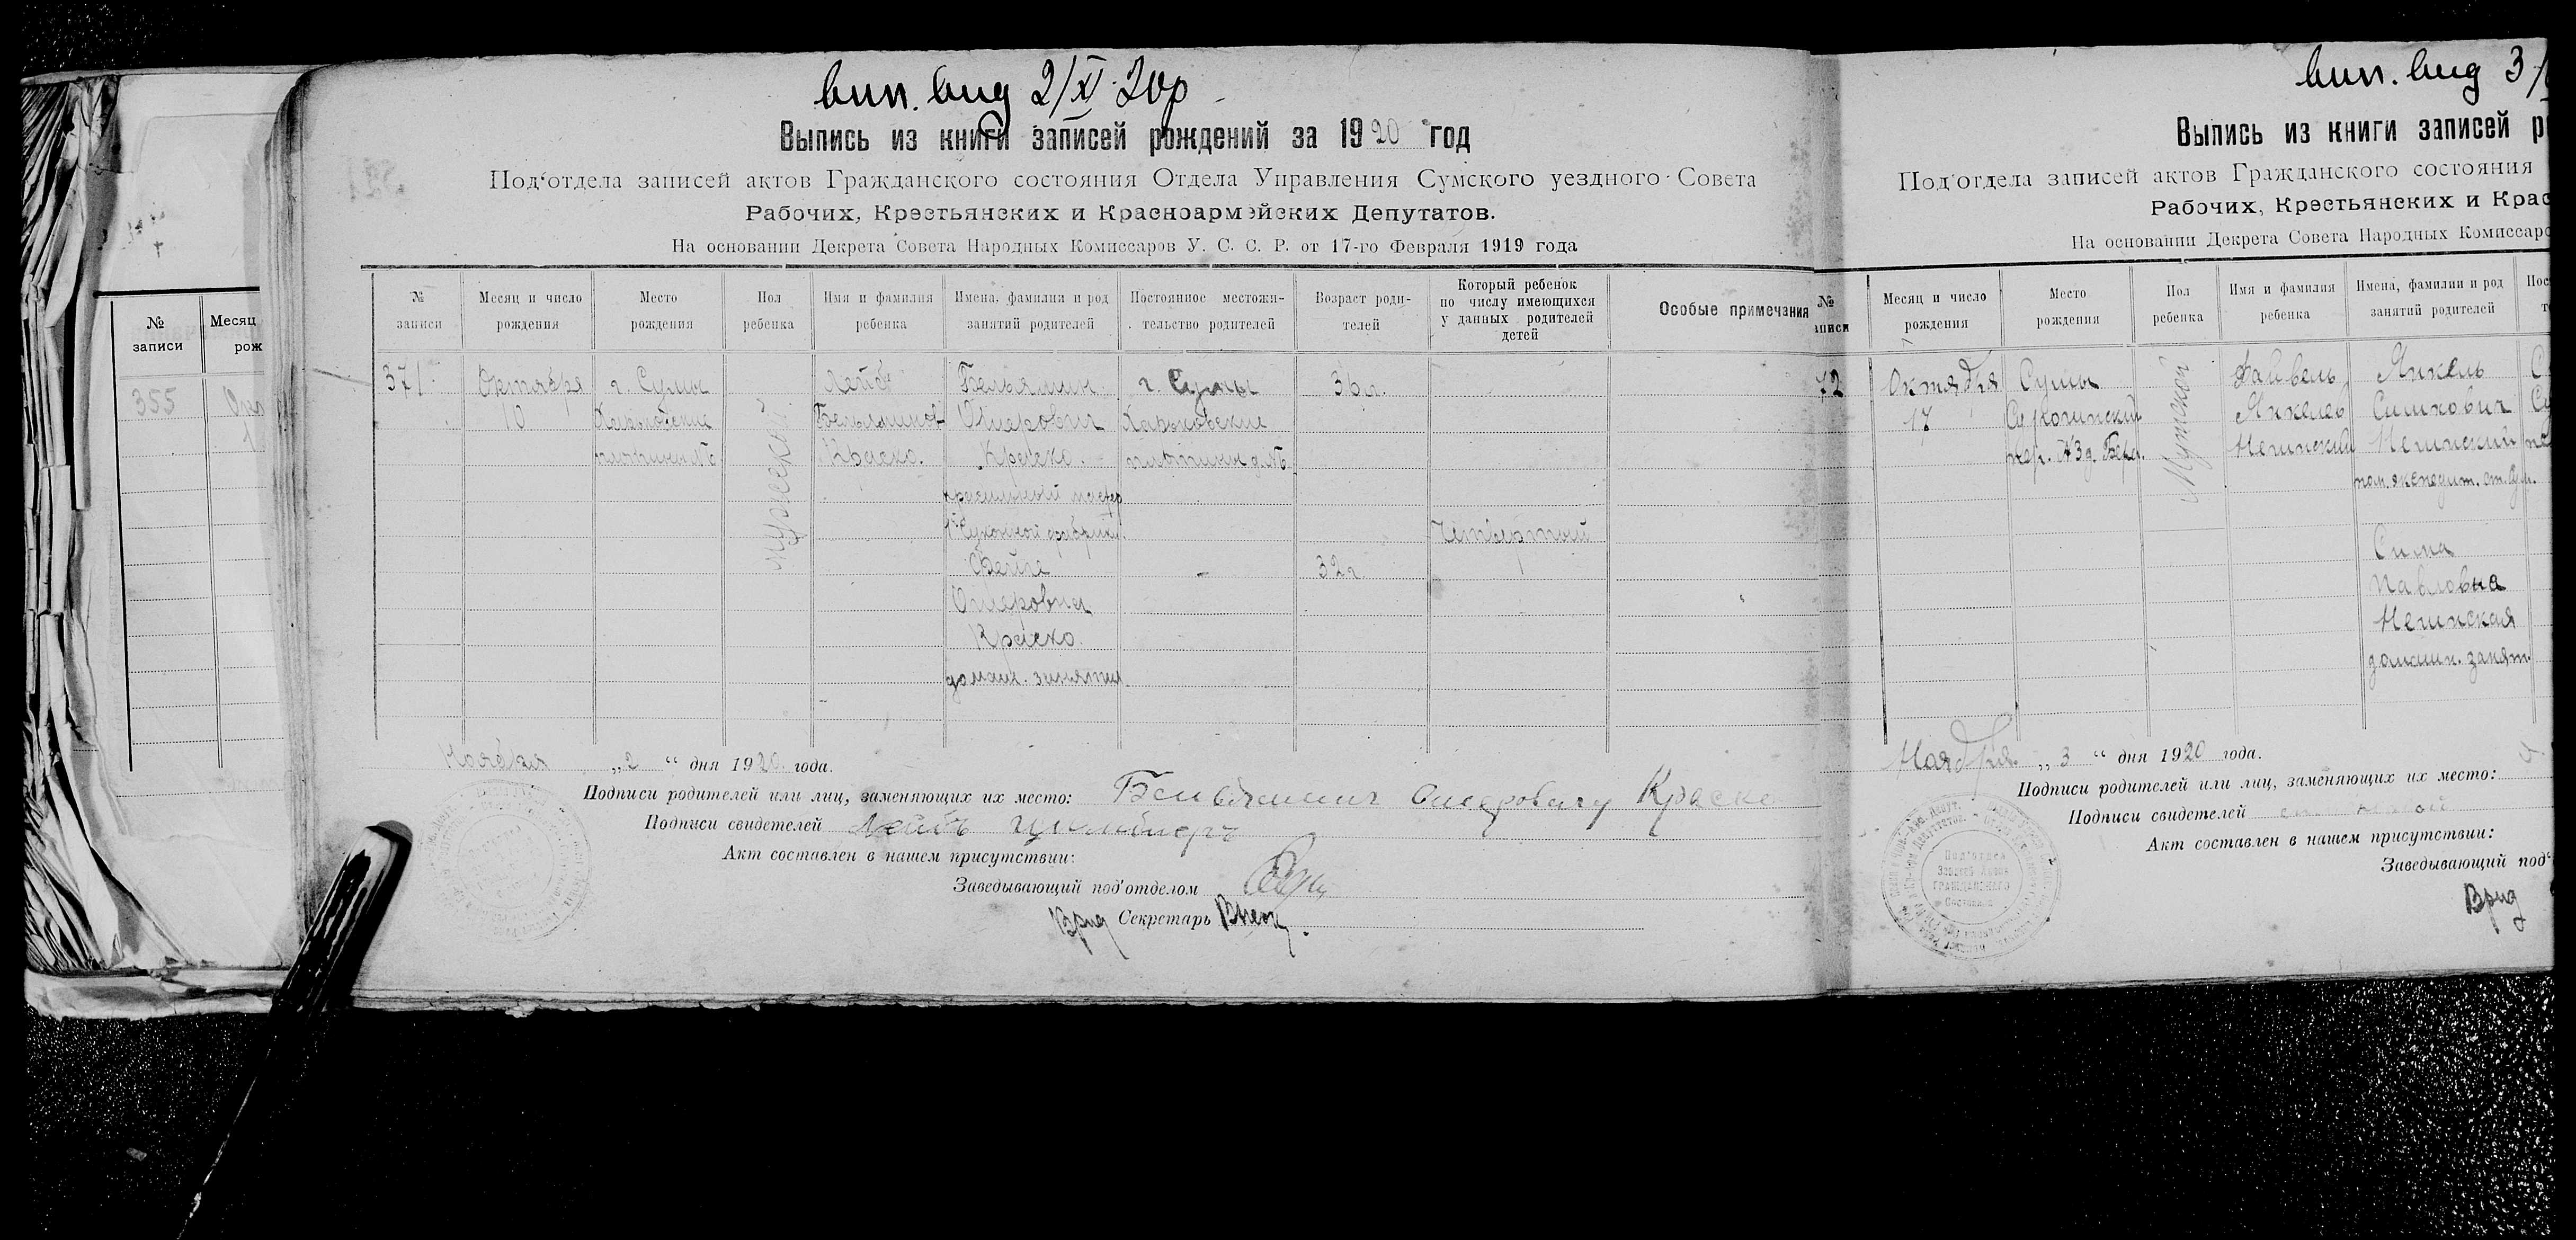 вип. вид 2/XI 20р
Выпись из книги записей рождений за 1920 год
Под'отдела записей актов Гражданского состояния Отдела Управления Сумского уездного Совета
Рабочих, Крестьянских и Красноармэйских Депутатов.
На основании Декрета Совета Народных Комиссаров У. С. С. Р. от 17-го Февраля 1919 года
№ записи
Месяц и число рождения
Место рождения
Пол ребенка
Имя и фамилия ребенка
Имена, фамилии и род занятий родителей
Постоянное местожительство родителей
Возраст родителей
Который ребенок по числу имеющихся у данных родителей детей
Особые примечания
371.
Октября
10
г. Сумы
Харьковские
мужской
Лейб
Краско.
Беньямин
Ошерович
Краско.
красильный мастер
Суконной фабрики.
Фейге
Ошеровна
Краско.
домашн. занятия
г. Сумы
Харьковские
36 л.
32 г.
Четвертый
Ноября „2“ дня 1920 года.
Подписи родителей или лиц, заменяющих их место: Краско
Подписи свидетелей Лейбъ
Акт составлен в нашем присутствии:
Заведывающий под'отделом
Врид Секретарь
№ записи
Месяц
рож
355
вип. вид 3/
Выпись из книги записей р
Под'отдела записей актов Гражданского состояния
Рабочих, Крестьянских и Крас
На основании Декрета Совета Народных Комиссаро
№
аписи
Месяц и число рождения
Место рождения
Пол ребенка
Имя и фамилия ребенка
Имена, фамилии и род занятий родителей
72
Октября
17
Сумы
пер. №3 д.
Мужской
Файвель
Янкелев
Нешинский
Янкель
Симхович
Нешинский
Сима
Павловна
Нешинская
домашн. занят.
Ноября „3“ дня 1920 года.
Подписи родителей или лиц, заменяющих их место:
Подписи свидетелей
Акт составлен в нашем присутствии:
Заведывающий под'
Врид
Под'отдел
Записей Актов
ГРАЖДАНСКОГО
Состояния